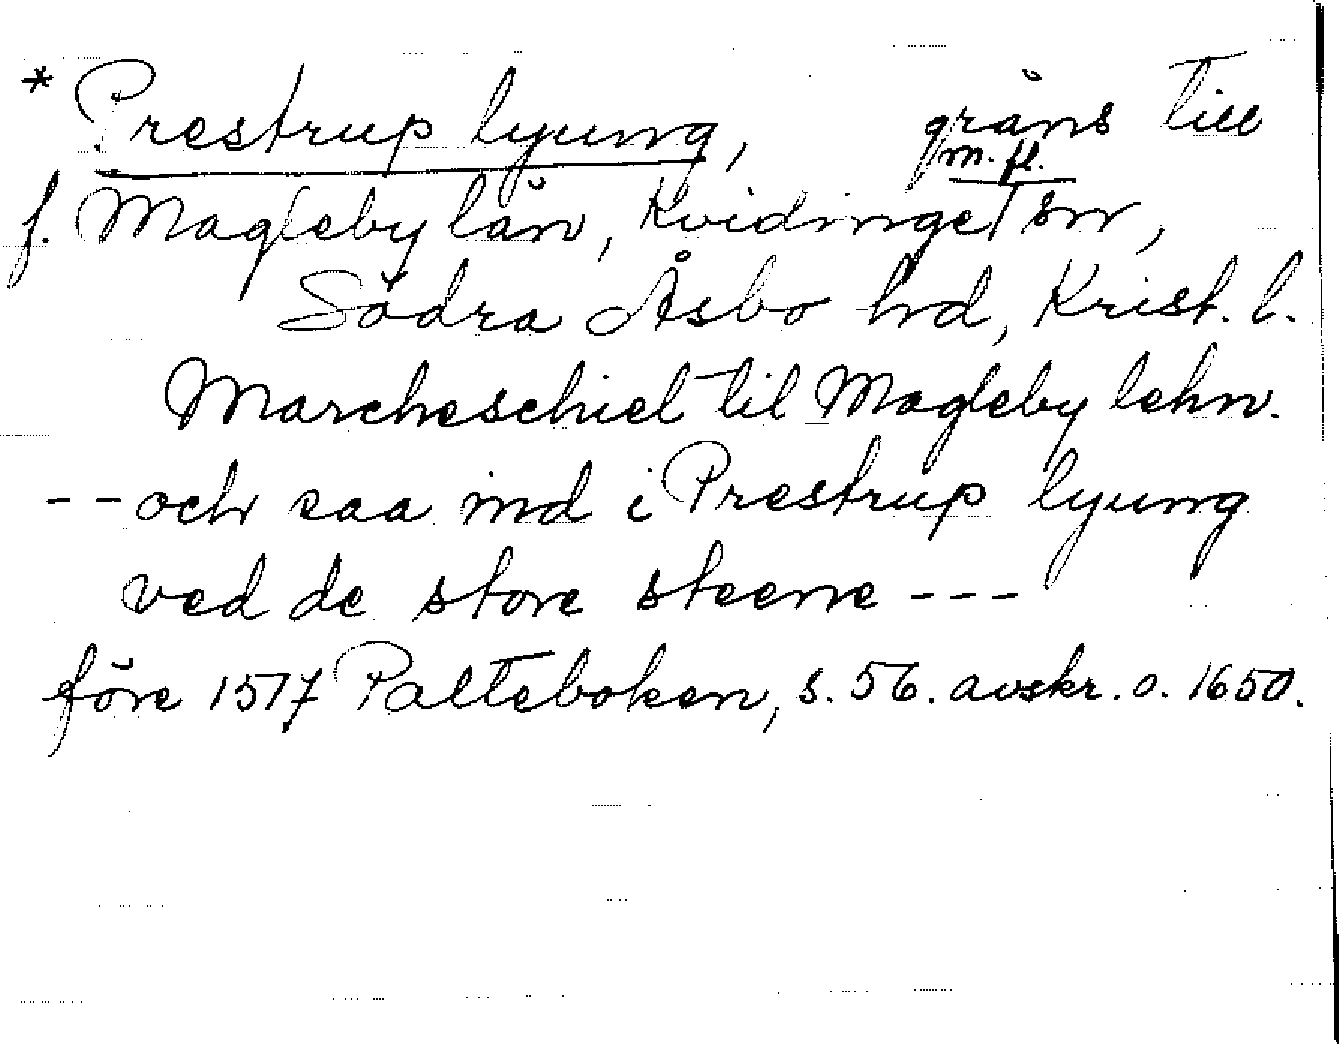 * Prestrup lyung, gräns till
f. Magleby län, Kvidinge m. fl. snr,
Södra Åsbo hd, Krist. l.
Marcheschiel til Magleby lehn.
-- och saa ind i Prestrup lyung
ved de store steene ---
före 1517 Palteboken, s. 56. avskr. o. 1650.